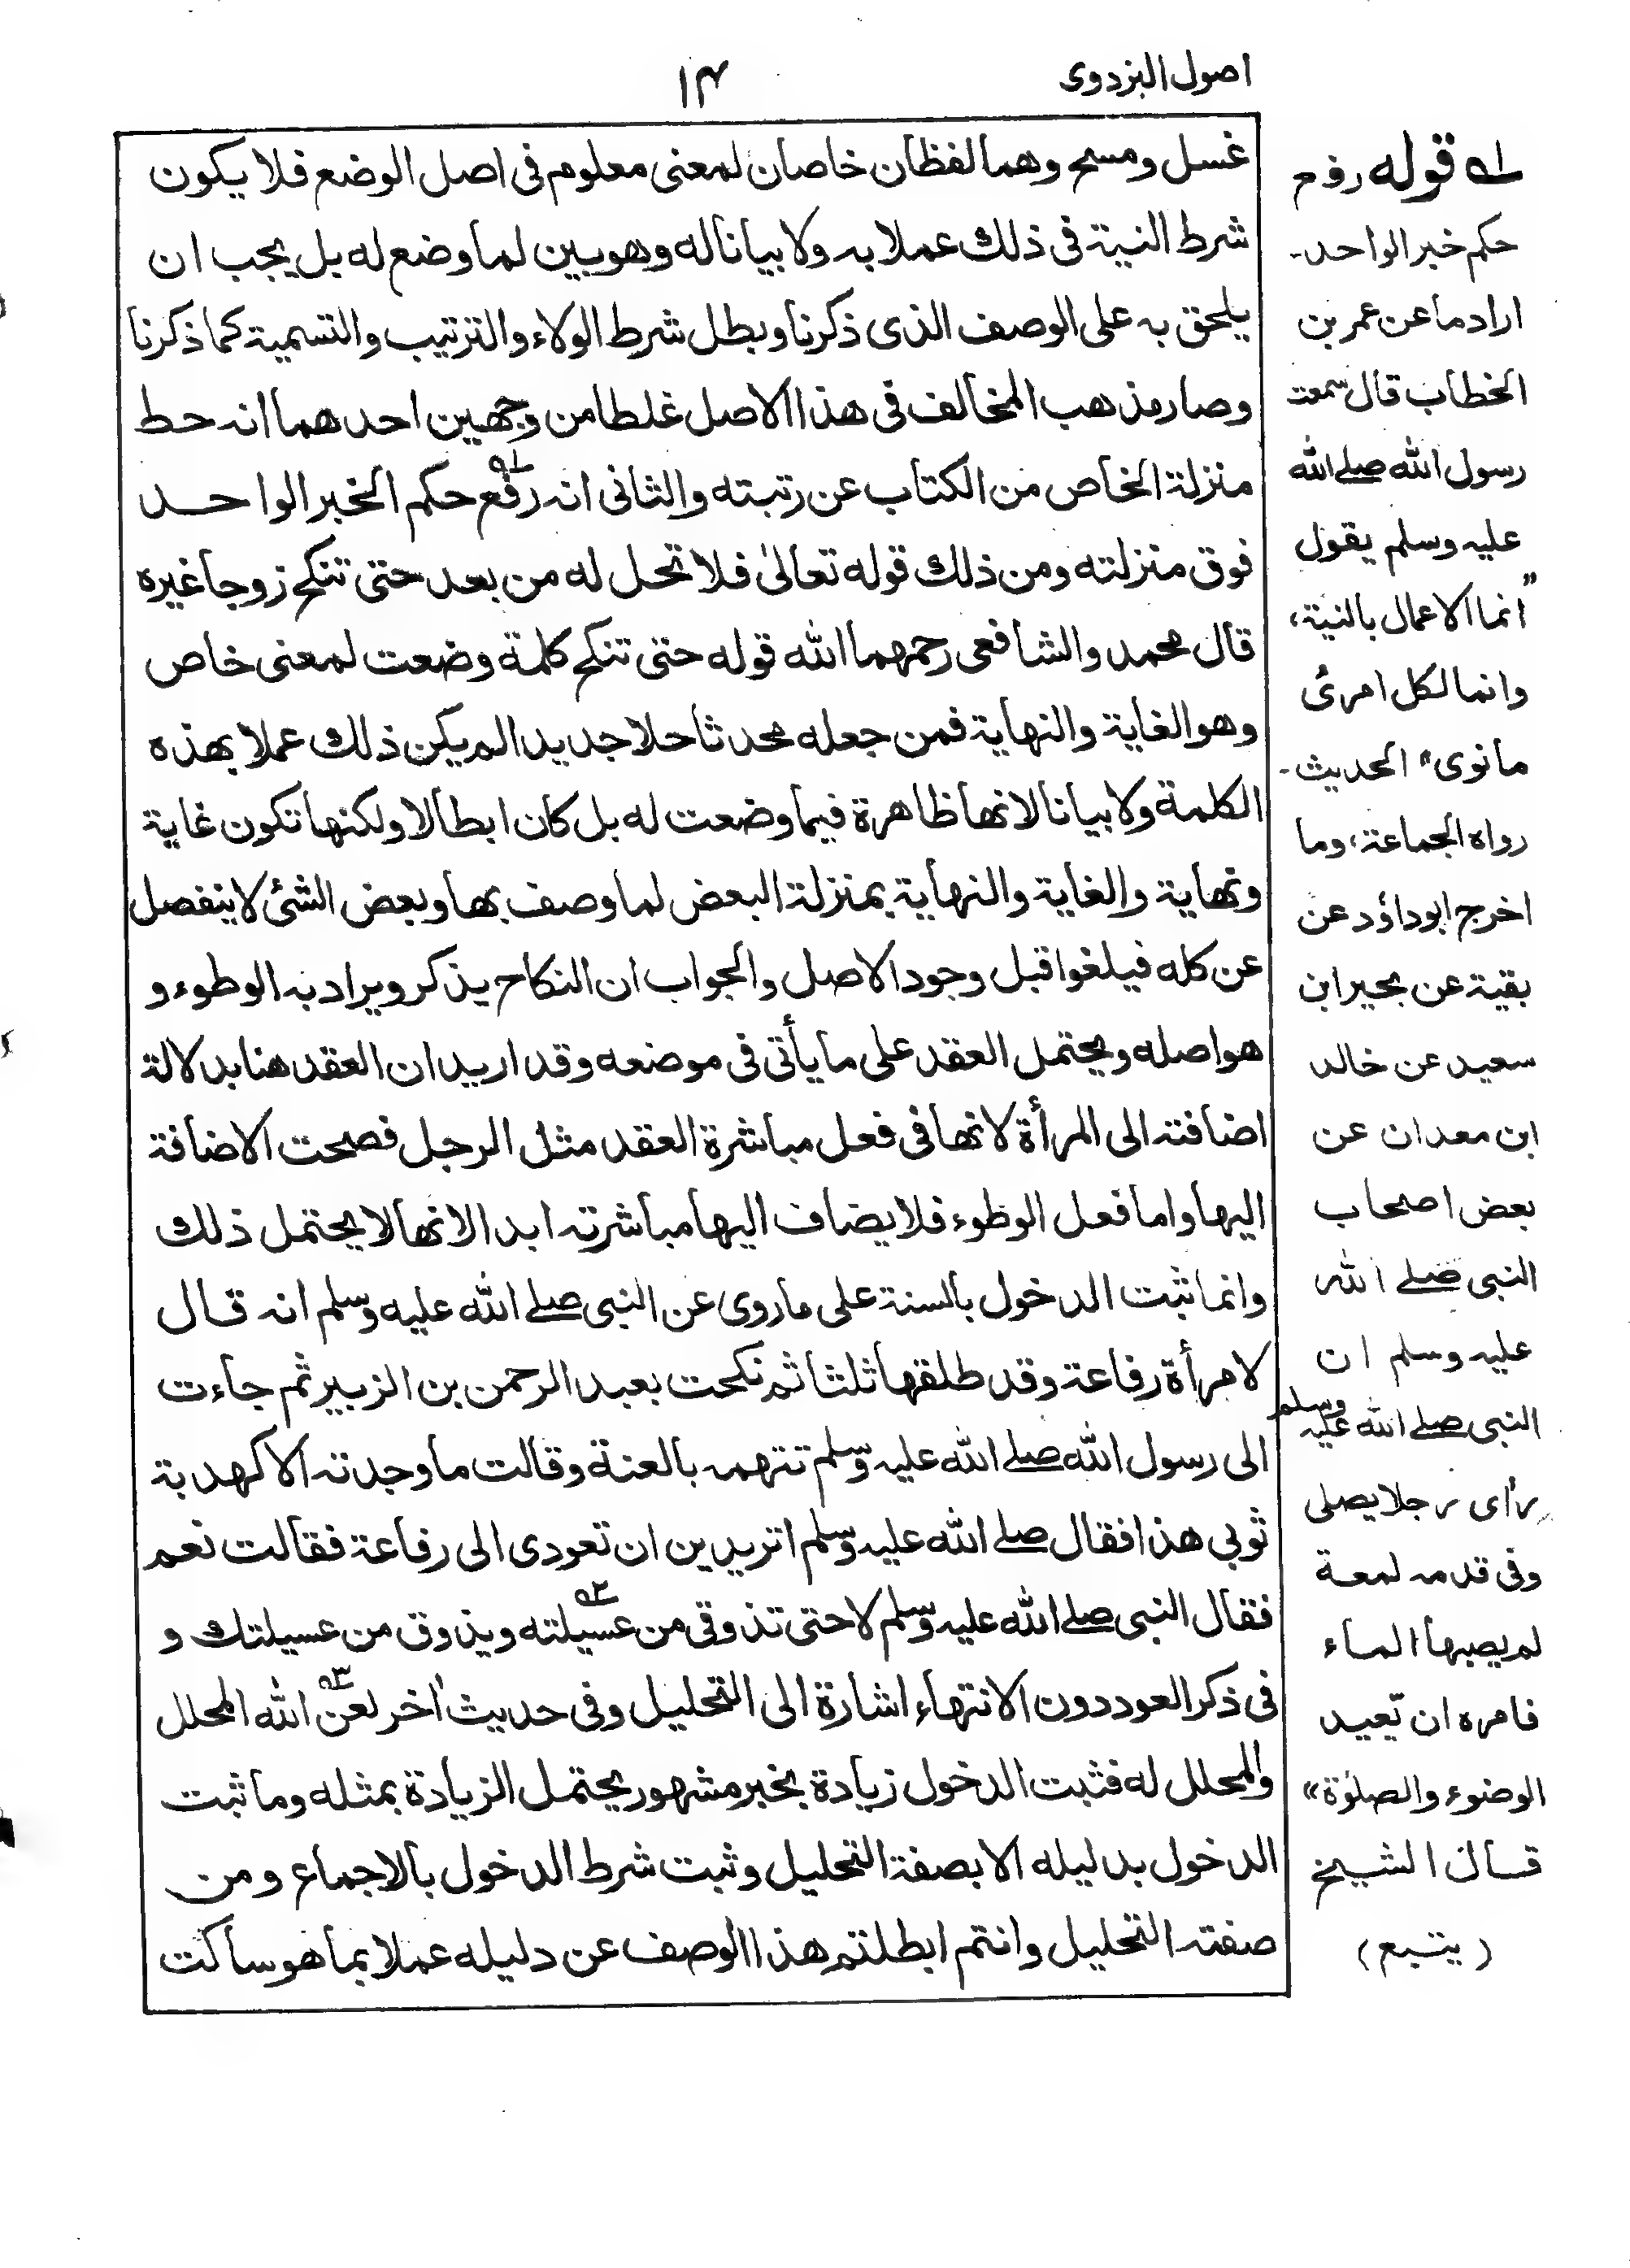 اصول البزدوی
۱۴
غسل ومسح وهما لفظان خاصان لمعنى معلوم فى اصل الوضع فلا يكون
شرط النية فى ذلك عملا به ولا بيانا له وهو بين لما وضع له بل يجب ان
يلحق به على الوصف الذى ذكرنا وبطل شرط الولاء والترتيب والتسمية كما ذكرنا
وصار مذهب المخالف فى هذا الاصل غلطا من وجهين احدهما انه حط
منزلة الخاص من الكتاب عن رتبته والثانى انه رفع ١ه حكم الخبر الواحد
فوق منزلته ومن ذلك قوله تعالىٰ فلا تحل له من بعد حتى تنكح زوجا غيره
قال محمد والشافعى رحمهما الله قوله حتى تنكح كلمة وضعت لمعنى خاص
وهو الغاية والنهاية فمن جعله محدثا حلا جديدا لم يكن ذلك عملا بهذه
الكلمة ولا بيانا لانها ظاهرة فيما وضعت له بل كان ابطالا ولكنها تكون غاية
ونهاية والغاية والنهاية بمنزلة البعض لما وصف بها وبعض الشئ لا ينفصل
عن كله فيلغوا قبل وجود الاصل والجواب ان النكاح يذكر ويراد به الوطوء و
هو اصله ويحتمل العقد على ما يأتى فى موضعه وقد اريد ان العقد هنا بدلالة
اضافته الى المرأة لانها فى فعل مباشرة العقد مثل الرجل فصحت الاضافة
اليها واما فعل الوطوء فلا يضاف اليها مباشرته ابدا لانها لا يحتمل ذلك
وانما ثبت الدخول بالسنة على ما روى عن النبى صلے الله عليه وسلم انه قال
لامرأة رفاعة وقد طلقها ثلثا ثم نكحت بعبد الرحمن بن الزبير ثم جاءت
الى رسول الله صلے الله عليه وسلم تتهمه بالعنة وقالت ما وجدته الا كهدبة
ثوبى هذا فقال صلے الله عليه وسلم اتريدين ان تعودى الى رفاعة فقالت نعم
فقال النبى صلے الله عليه وسلم لا حتى تذوقى من عسيلته ٢ه ويذوق من عسيلتك و
فى ذكر العود دون الانتهاء اشارة الى التحليل وفى حديث اٰخر لعن ٣ه الله المحلل
والمحلل له فثبت الدخول زيادة بخبر مشهور يحتمل الزيادة بمثله وما ثبت
الدخول بدليله الا بصفة التحليل وثبت شرط الدخول بالاجماع ومن
صفته التحليل وانتم ابطلتم هذا الوصف عن دليله عملا بما هو ساكت
١ه قوله رفع
حكم خبر الواحد۔
اراد ما عن عمر بن
الخطاب قال سمعت
رسول الله صلے الله
عليه وسلم يقول
”انما الاعمال بالنية،
وانما لكل امرئ
ما نوى“ الحديث۔
رواه الجماعة، وما
اخرج ابوداؤد عن
بقية عن بحير ابن
سعيد عن خالد
ابن معدان عن
بعض اصحاب
النبى صلے الله
عليه وسلم ان
النبى صلے الله عليه وسلم
رأى رجلا يصلى
وفى قدمه لمعة
لم يصبها الماء
فامره ان يّعيد
الوضوء والصلوٰة»
قال الشيخ
(يتبع)